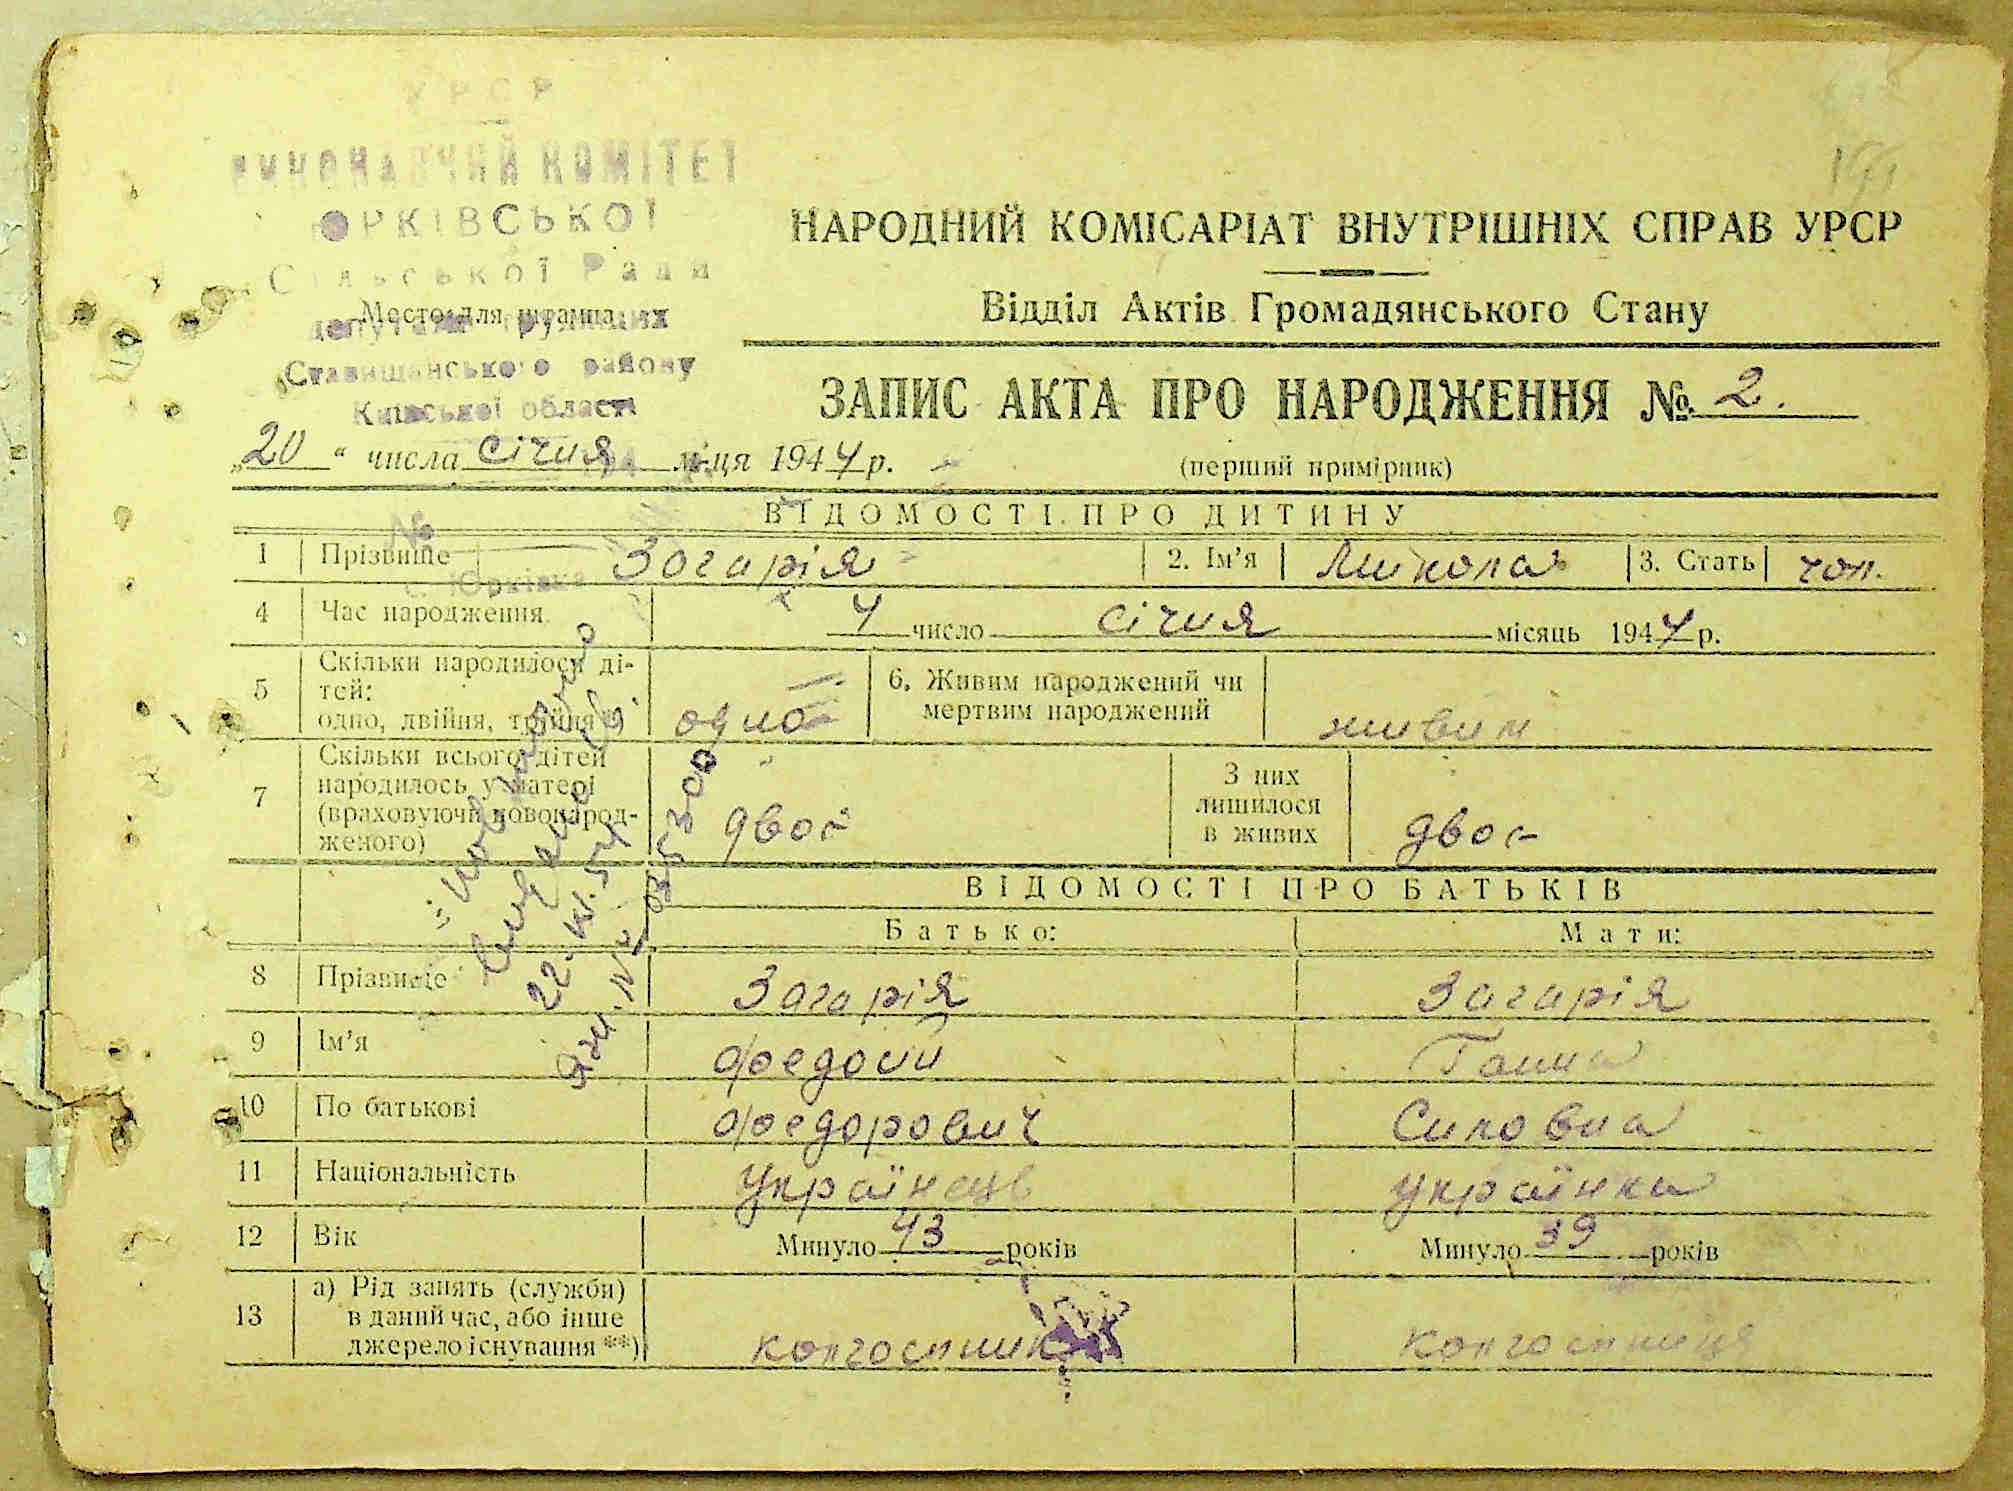 УРСР
ВИКОНАВЧИЙ КОМІТЕТ
ЮРКІВСЬКОЇ
Сільської Ради
Место для штампа
депутатів трудящих
Ставищанського району
Київської області
НАРОДНИЙ КОМІСАРІАТ ВНУТРІШНІХ СПРАВ УРСР
Відділ Актів Громадянського Стану
ЗАПИС АКТА ПРО НАРОДЖЕННЯ № 2.
„20“ числа січня м-ця 1944 р.
(перший примірник)
№
с. Юрківка
ВІДОМОСТІ ПРО ДИТИНУ
1 Прізвище Загарія 2. Ім'я Микола 3. Стать чол.
4 Час народження 4 число січня місяць 1944 р.
5 Скільки народилося ді-
тей:
одно, двійня, трійня *) одно
6. Живим народжений чи
мертвим народжений живим
7 Скільки всього дітей
народилось у матері
(враховуючи новонарод-
женого) двоє
З них
лишилося
в живих двоє
22. 54
№ 035300
ВІДОМОСТІ ПРО БАТЬКІВ
Батько: Мати:
8 Прізвище Загарія Загарія
9 Ім'я Федош Ганна
10 По батькові Федорович Силовна
11 Національність Українець українка
12 Вік Минуло 43 років Минуло 39 років
13 а) Рід занять (служби)
в даний час, або інше
джерело існування **) колгоспник колгоспниця